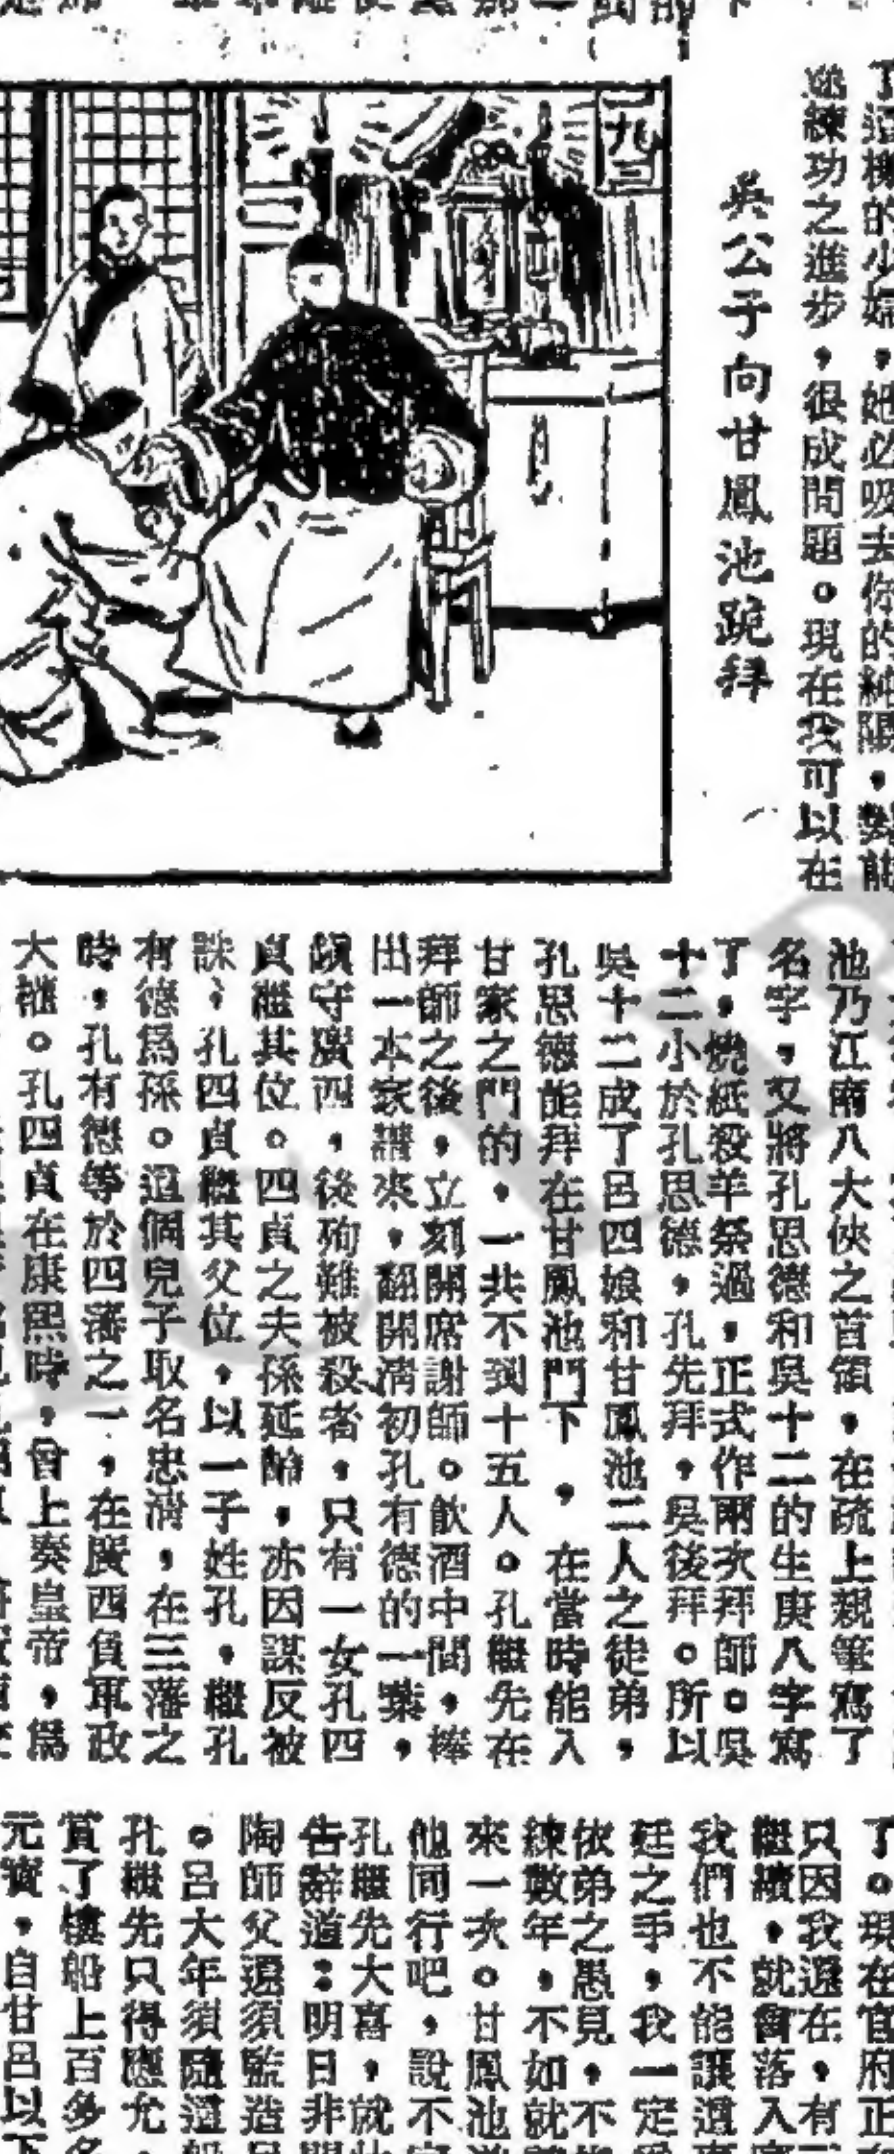 一九三
吳公子向甘鳳池跪拜
了這樣的小婦，她必吸去你的純陽，對能
迅練功之進步，很成問題。現在我可以在
池乃江南八大俠之首領，在疏上親筆寫了
名字，又將孔思德和吳十二的生庚八字寫
了，燒紙殺羊祭過，正式作兩次拜師。吳
十二小於孔思德，孔先拜，吳後拜。所以
吳十二成了呂四娘和甘鳳池二人之徒弟，
孔思德能拜在甘鳳池門下，在當時能入
甘家之門的，一共不到十五人。孔繼先在
拜師之後，立刻開席謝師。飲酒中間，捧
出一本家譜來，翻開清初孔有德的一葉，
鎮守廣西，後殉難被殺者，只有一女孔四
貞繼其位。四貞之夫孫延齡，亦因謀反被
誅，孔四貞繼其父位，以一子姓孔，繼孔
有德爲孫。這個兒子取名忠清，在三藩之
時，孔有德等於四藩之一，在廣西負軍政
大權。孔四貞在康熙時，曾上奏皇帝，爲
了。現在官府正
只因我還在，有
繼續，就會落入
我們也不能讓這
廷之手，我一定
依弟之愚見，不
練數年，不如就
來一次。甘鳳池
他同行吧，說不
孔繼先大喜，就
告辭道：明日非
陶師父還須監造
。呂大年須隨這
孔繼先只得應允，
賞了樓船上百多名
元寶，自甘呂以下